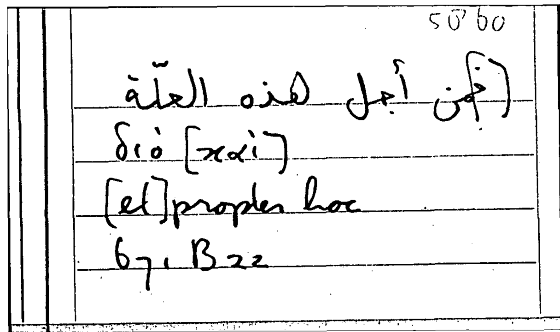 50 60
(فمن أجل هذه العلّة
διὸ [καὶ]
[et] propter hoc
671 B22